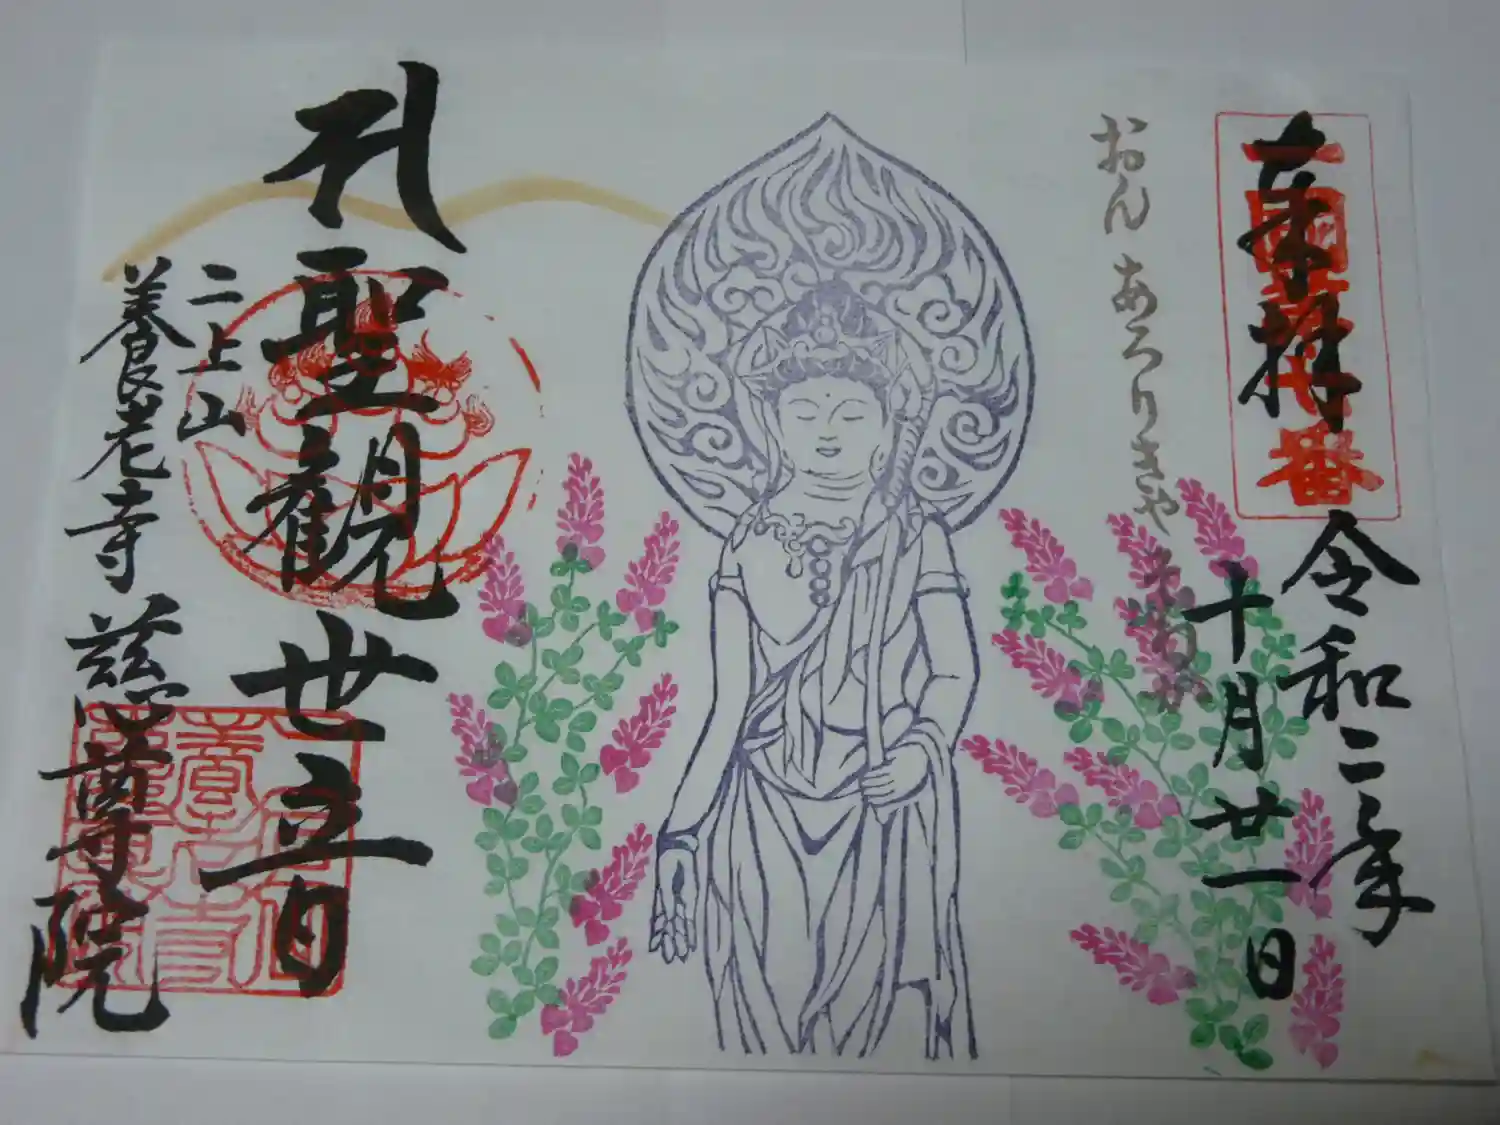 奉拝
令和二年
十月廿一日
おん あろりきや そわか
聖観世音
二上山
養老寺 慈尊院